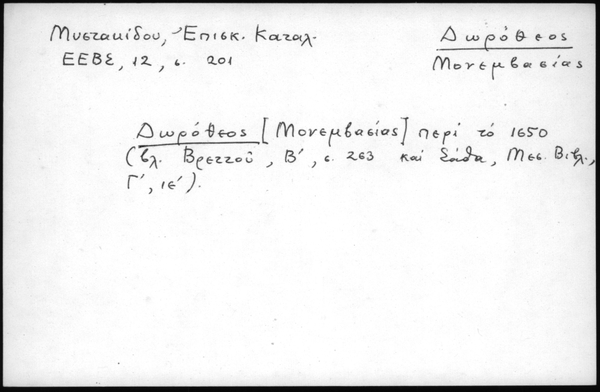 Μυστακίδου, Ἐπισκ. Καταλ.
ΕΕΒΣ, 12, σ. 201
Δωρόθεος
Μονεμβασίας
Δωρόθεος [Μονεμβασίας] περί τό 1650
(βλ. Βρεττοῦ, Β', σ. 263 καί Σάθα, Μεσ. Βιβλ.,
Γ', ιε').